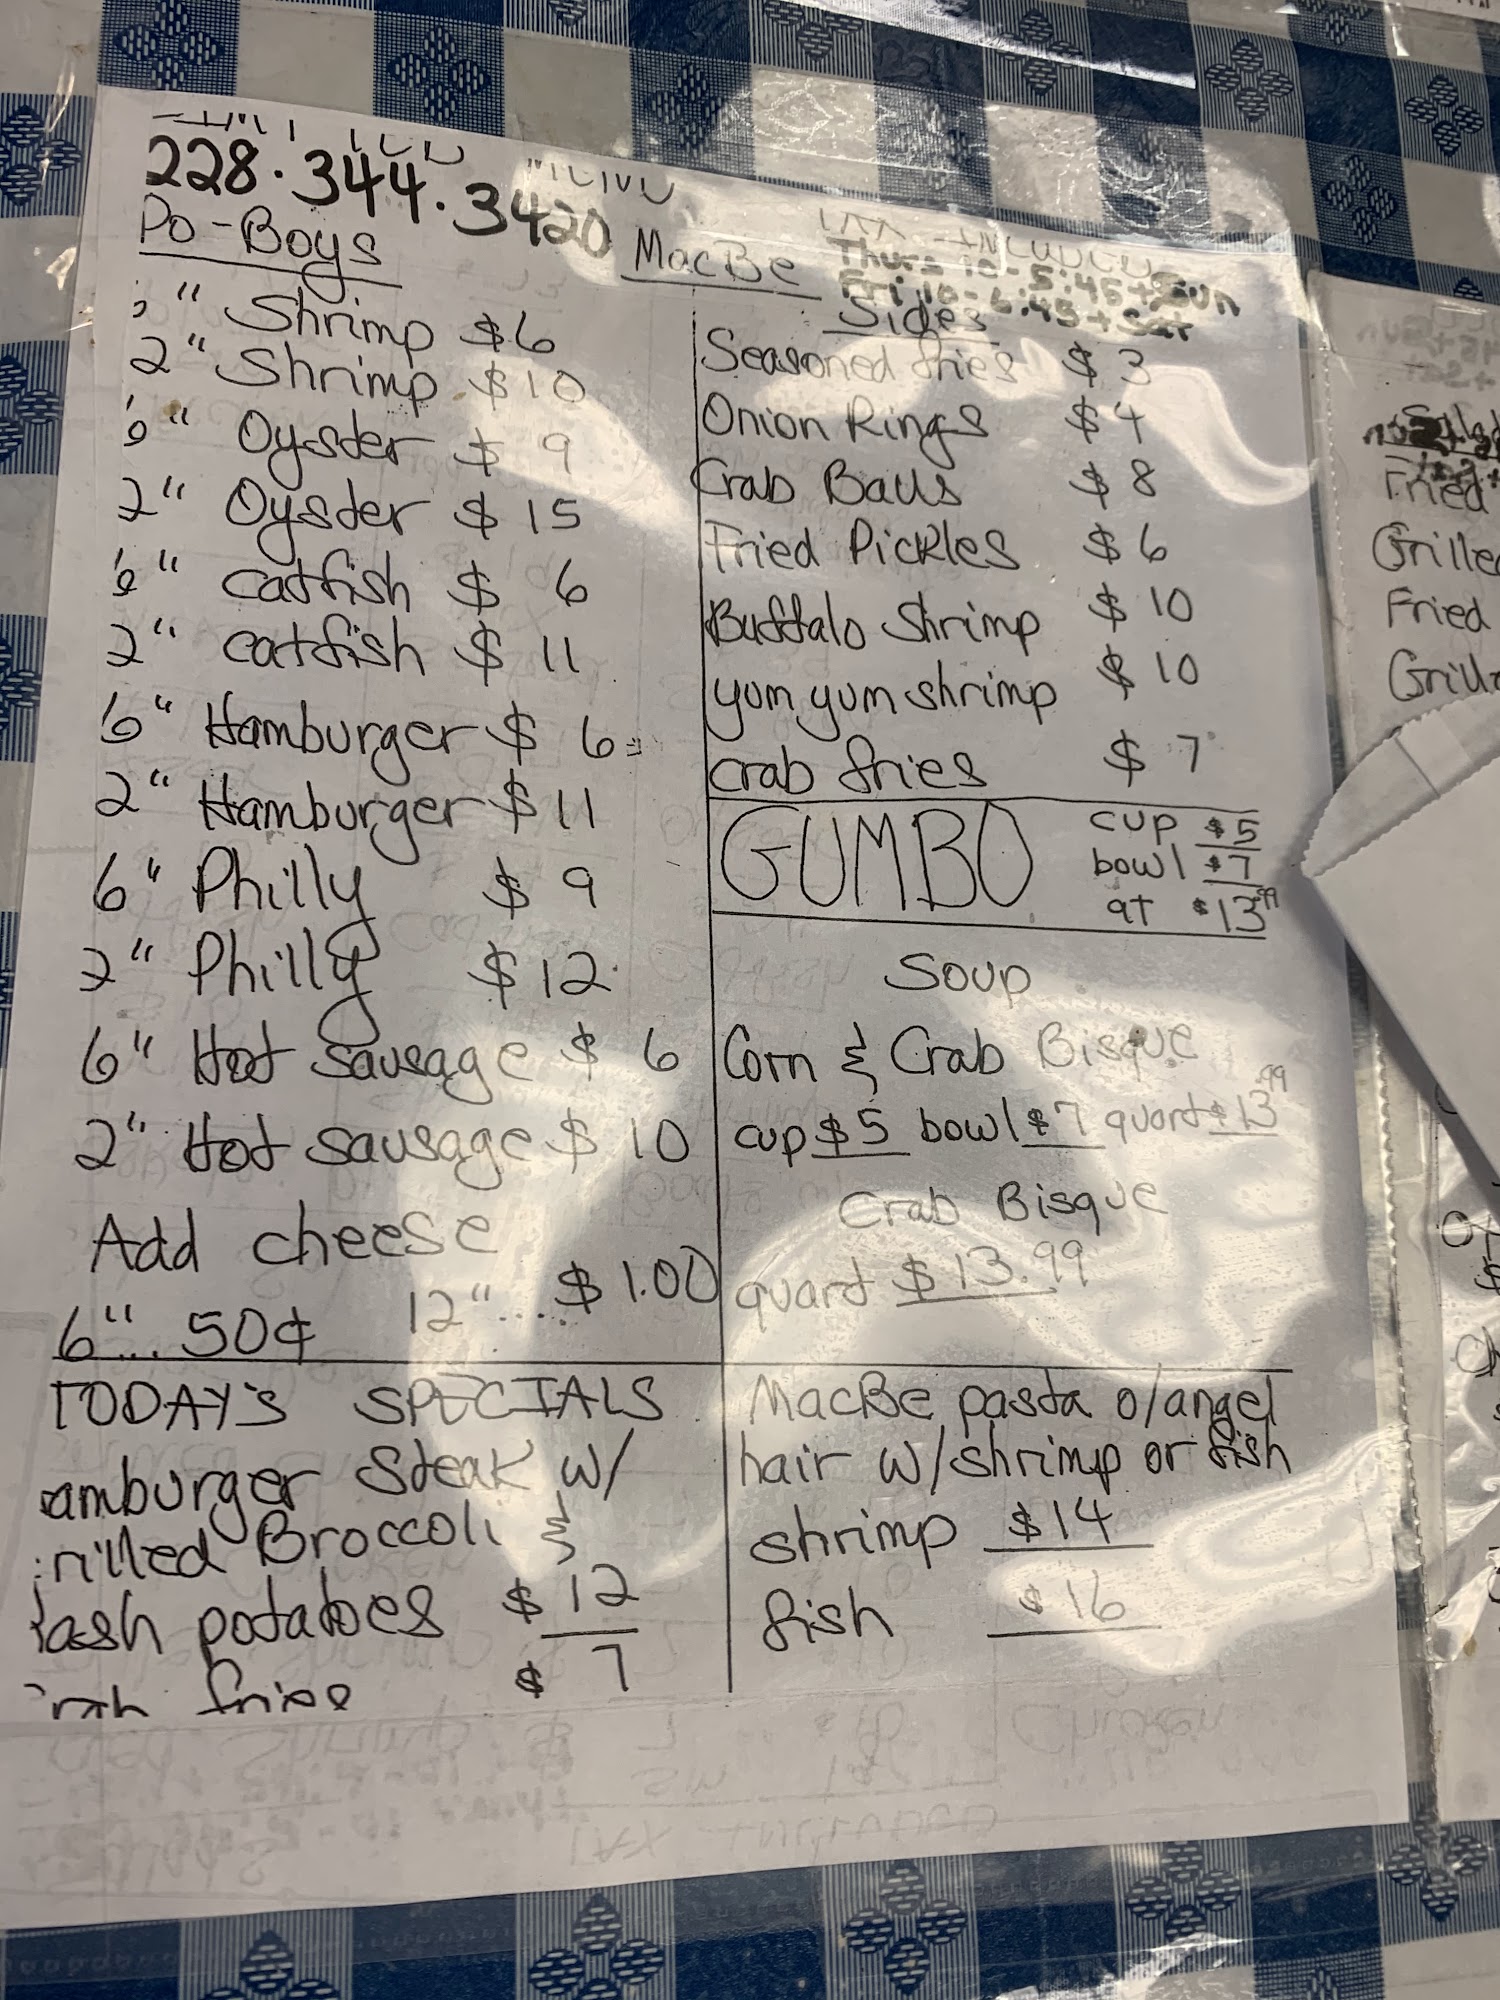 228.344.3420
Po-Boys
MacBe
TAX INCLUDED
Thurs 10-5:45 + Sun
Fri 10-6:45 + Sat
" Shrimp $6
2" Shrimp $10
6" Oyster $ 9
2" Oyster $ 15
6" Catfish $ 6
2" Catfish $ 11
6" Hamburger $ 6
2" Hamburger $ 11
6" Philly $ 9
2" Philly $ 12
6" Hot Sausage $ 6
2" Hot Sausage $ 10
Add cheese
6"... 50¢ 12".... $ 1.00
Sides
Seasoned fries $ 3
Onion Rings $ 4
Crab Balls $ 8
Fried Pickles $ 6
Buffalo Shrimp $ 10
yum yum shrimp $ 10
crab fries $ 7
GUMBO
cup $5
bowl $7
qt $13.99
Soup
Corn & Crab Bisque
cup $5 bowl $7 quart $13.99
Crab Bisque
quart $13.99
TODAY'S SPECIALS
amburger Steak w/
rilled Broccoli &
ash potatoes $ 12
fries $ 7
MacBe pasta o/angel
hair w/shrimp or fish
shrimp $14
fish $16
Fried
Grilled
Fried